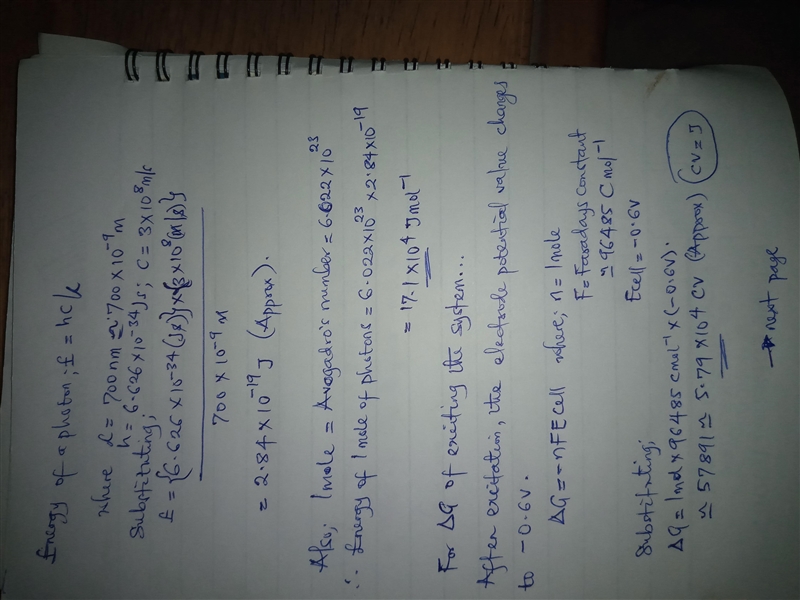 Energy of a photon; E = hc/λ
where λ = 700nm ≃ 700 x 10⁻⁹ m
h = 6.626 x 10⁻³⁴ Js; C = 3 x 10⁸ m/s
Substituting;
E = {6.626 x 10⁻³⁴ (Js)} x {3 x 10⁸ (m/s)}
700 x 10⁻⁹ m
= 2.84 x 10⁻¹⁹ J (Approx).
Also; 1mole = Avogadro's number = 6.022 x 10²³
∴ Energy of 1 mole of photons = 6.022 x 10²³ x 2.84 x 10⁻¹⁹
= 17.1 x 10⁴ J mol⁻¹
For ΔG of exciting the system...
After excitation, the electrode potential value changes
to -0.6V.
ΔG = -nFEcell where; n = 1 mole
F = Faradays constant
≃ 96485 C mol⁻¹
Ecell = -0.6V
Substituting;
ΔG = 1mol x 96485 C mol⁻¹ x (-0.6V).
≃ 57891 ≃ 5.79 x 10⁴ CV (Approx) (CV = J)
→ next page